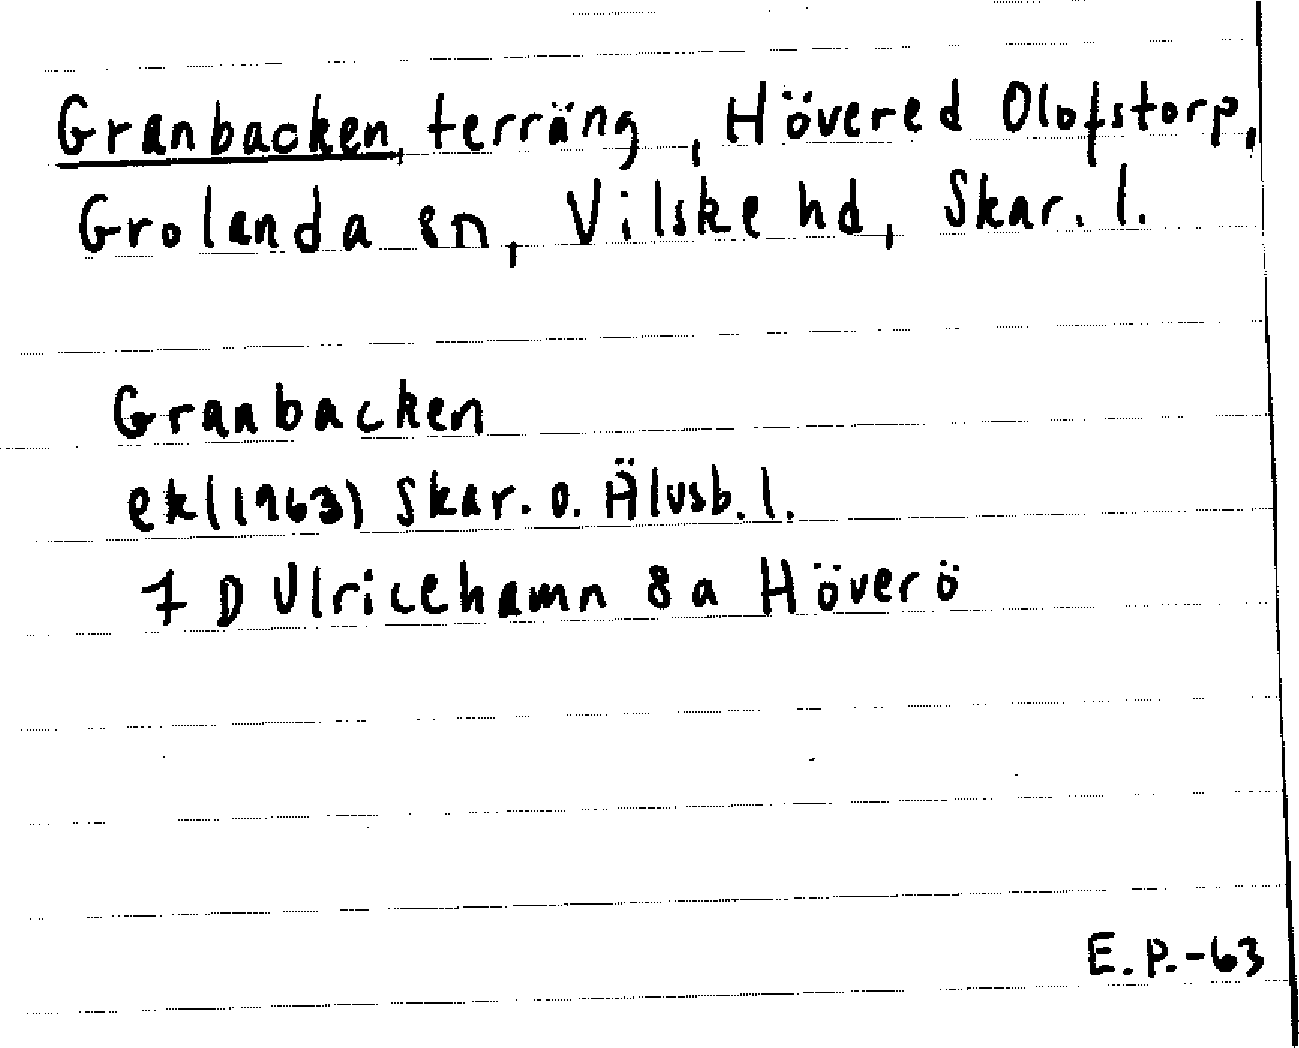 Granbacken, terräng, Hövered Olofstorp,
Grolanda sn, Vilske hd, Skar. l.
Granbacken
ek(1963) Skar. o. Älvsb. l.
7 D Ulricehamn 8 a Höverö
E.P.-63